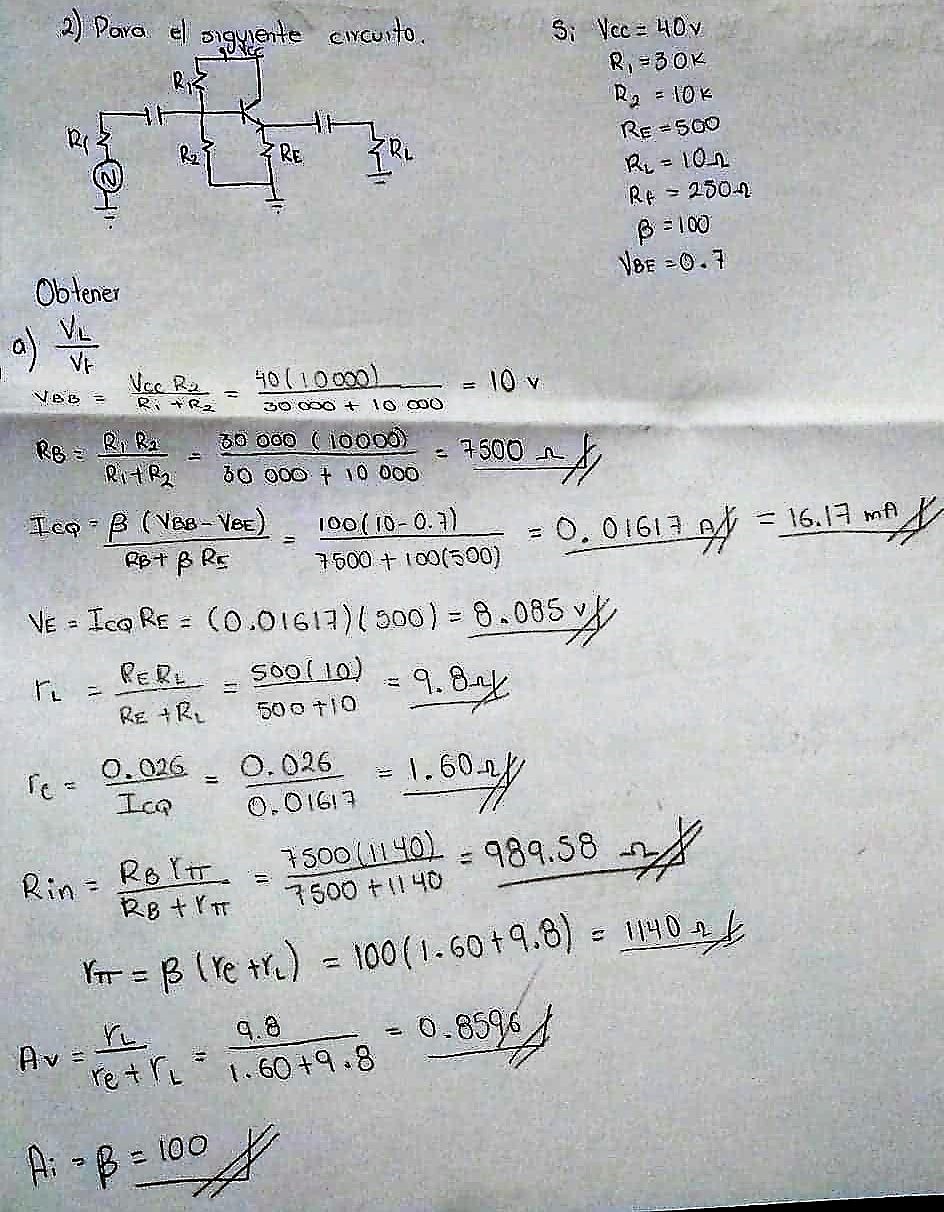 2) Para el siguiente circuito.
Vcc
R1
Rf
R2
RE
RL
N
Si Vcc = 40v
R1 = 30K
R2 = 10K
RE = 500
RL = 10Ω
Rf = 250Ω
β = 100
VBE = 0.7
Obtener
a) VL / Vf
VBB = Vcc R2 / R1 + R2 = 40(10000) / 30 000 + 10 000 = 10 v
RB = R1 R2 / R1 + R2 = 30 000 (10000) / 30 000 + 10 000 = 7500 Ω
ICQ = β (VBB - VBE) / RB + β RE = 100(10-0.7) / 7500 + 100(500) = 0.01617 A = 16.17 mA
VE = ICQ RE = (0.01617)(500) = 8.085 v
rL = RE RL / RE + RL = 500(10) / 500 + 10 = 9.8Ω
re = 0.026 / ICQ = 0.026 / 0.01617 = 1.60Ω
Rin = RB rπ / RB + rπ = 7500(1140) / 7500 + 1140 = 989.58 Ω
rπ = β (re + rL) = 100(1.60 + 9.8) = 1140 Ω
Av = rL / re + rL = 9.8 / 1.60 + 9.8 = 0.8596
Ai = β = 100